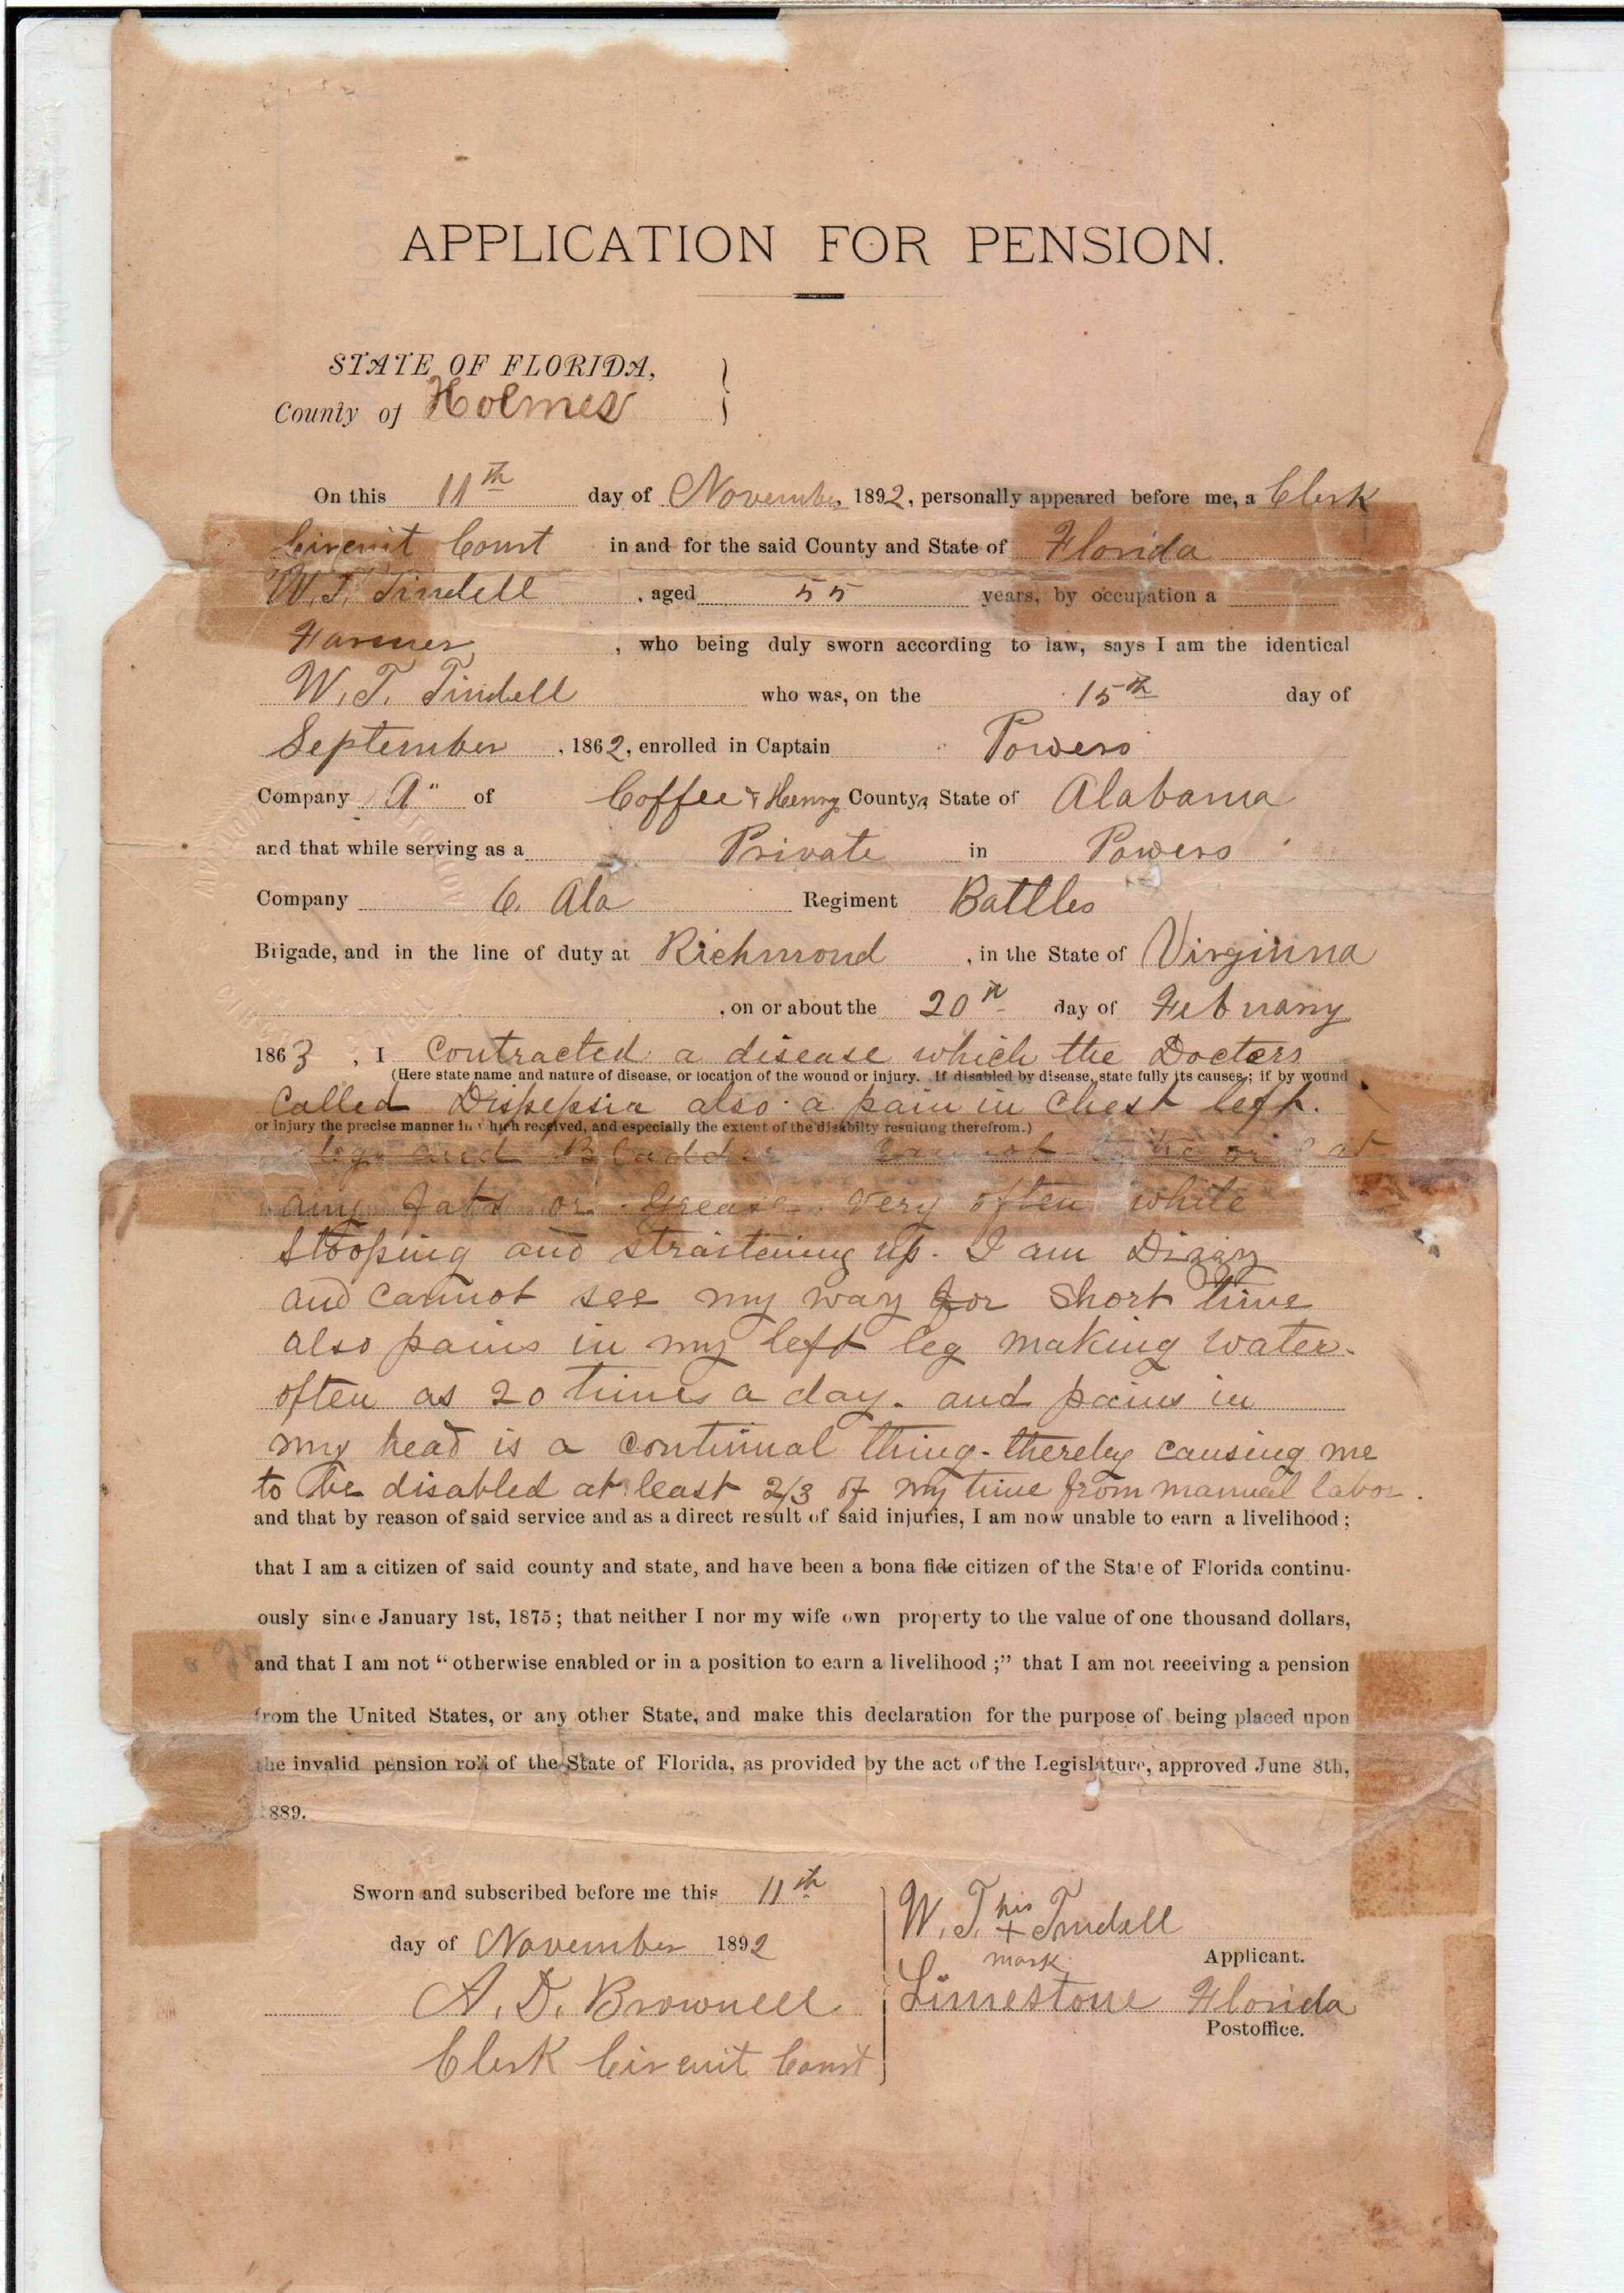 APPLICATION FOR PENSION.
STATE OF FLORIDA,
County of Holmes
On this 11th day of November 1892, personally appeared before me, a Clerk
Circuit Court in and for the said County and State of Florida
W. T. Tindell, aged 55 years, by occupation a
Farmer, who being duly sworn according to law, says I am the identical
W. T. Tindell who was, on the 15th day of
September, 1862, enrolled in Captain Powers
Company "A" of Coffee & Henry Countys State of Alabama
and that while serving as a Private in Powers
Company 6. Ala Regiment Battles
Brigade, and in the line of duty at Richmond, in the State of Virginna
, on or about the 20th day of Febuary
1863, I Contracted a disease which the Docters
(Here state name and nature of disease, or location of the wound or injury. If disabled by disease, state fully its causes; if by wound
Called Dispepsia also a pain in Chest left.
or injury the precise manner in which received, and especially the extent of the disabilty resulting therefrom.)
leg and Bladder
any fats or Grease. Very often while
stooping and straitening up. I am Dizzy
and cannot see my way for Short time
also pains in my left leg making water.
often as 20 times a day. and pains in
my head is a continual thing - thereby causing me
to be disabled at least 2/3 of my time from manual labor.
and that by reason of said service and as a direct result of said injuries, I am now unable to earn a livelihood;
that I am a citizen of said county and state, and have been a bona fide citizen of the State of Florida continu-
ously since January 1st, 1875; that neither I nor my wife own property to the value of one thousand dollars,
and that I am not "otherwise enabled or in a position to earn a livelihood;" that I am not receiving a pension
from the United States, or any other State, and make this declaration for the purpose of being placed upon
the invalid pension roll of the State of Florida, as provided by the act of the Legislature, approved June 8th,
1889.
Sworn and subscribed before me this 11th
day of November 1892
A. D. Brownell
Clerk Circuit Court
W. T. his + mark Tindell
Applicant.
Limestone Florida
Postoffice.